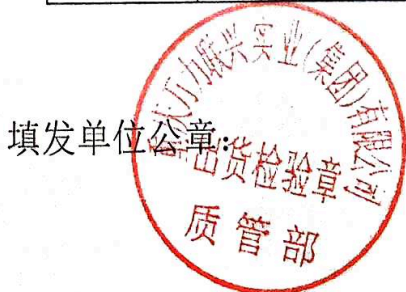 填发单位公章:
万力联兴实业(集团)有限公司
出货检验章
质管部